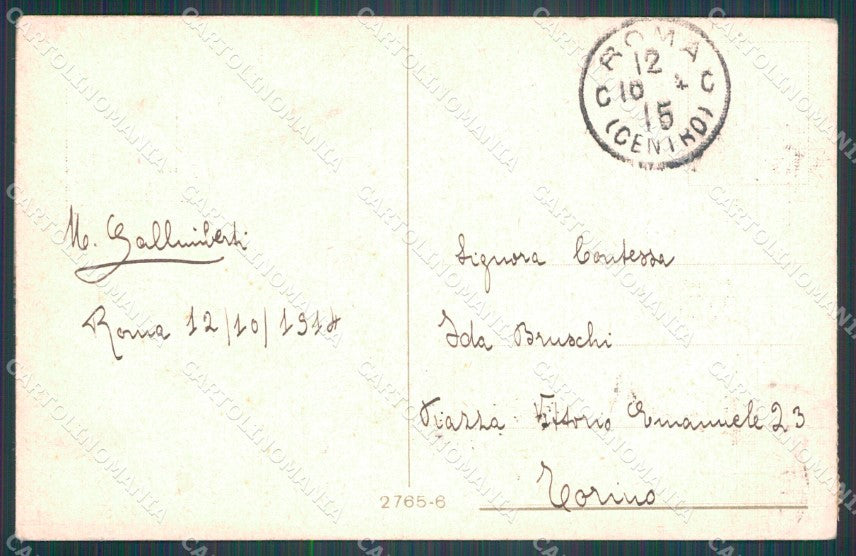 ROMA
12
10 *
15
C C
(CENTRO)
M. Gallimberti
Roma 12/10/1914
Signora Contessa
Ida Bruschi
Piazza Vittorio Emanuele 23
Torino
2765-6
CARTOLINOMANIA